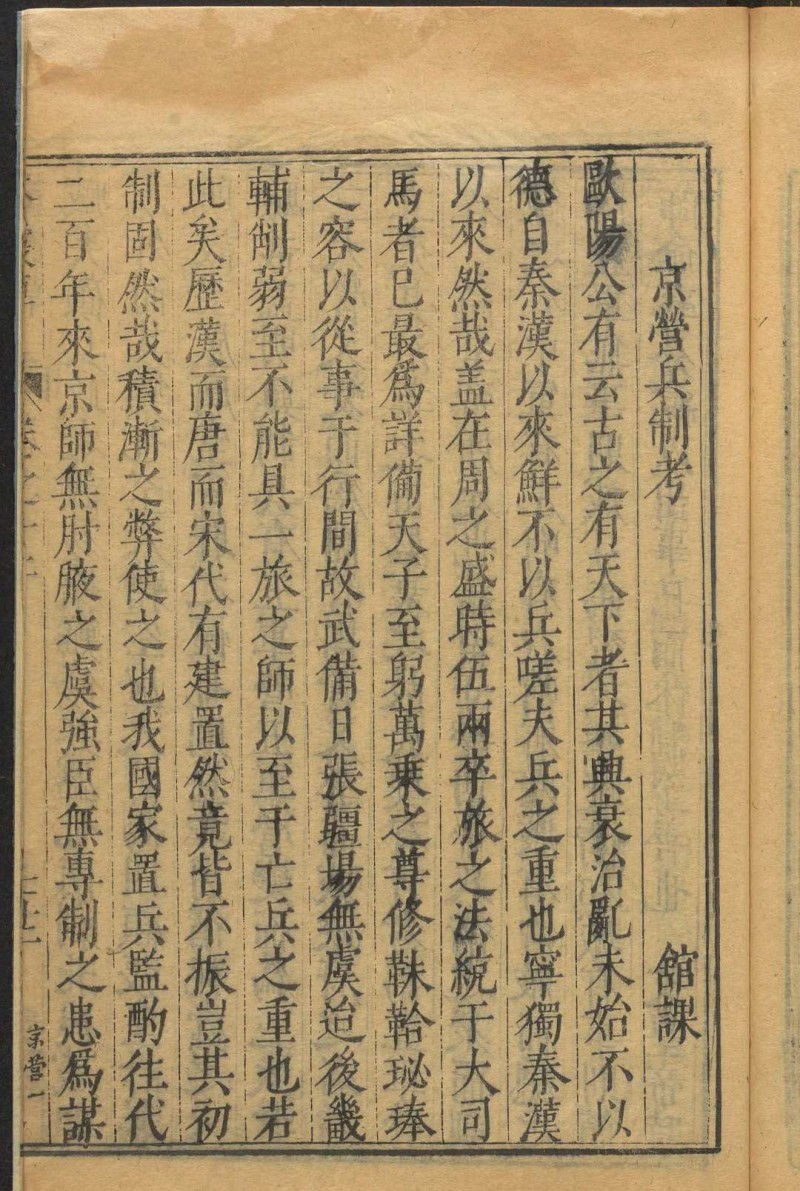 京營兵制考 館課
歐陽公有云古之有天下者其興衰治亂未始不以
德自秦漢以來鮮不以兵嗟夫兵之重也寧獨秦漢
以來然哉盖在周之盛時伍兩卒旅之法統于大司
馬者已最爲詳備天子至躬萬乗之尊修韎韐珌琫
之容以從事于行間故武備日張疆場無虞迨後畿
輔削弱至不能具一旅之師以至于亡兵之重也若
此矣歷漢而唐而宋代有建置然竟皆不振豈其初
制固然哉積漸之弊使之也我國家置兵監酌往代
二百年來京師無肘腋之虞強臣無專制之患爲謀
京營一